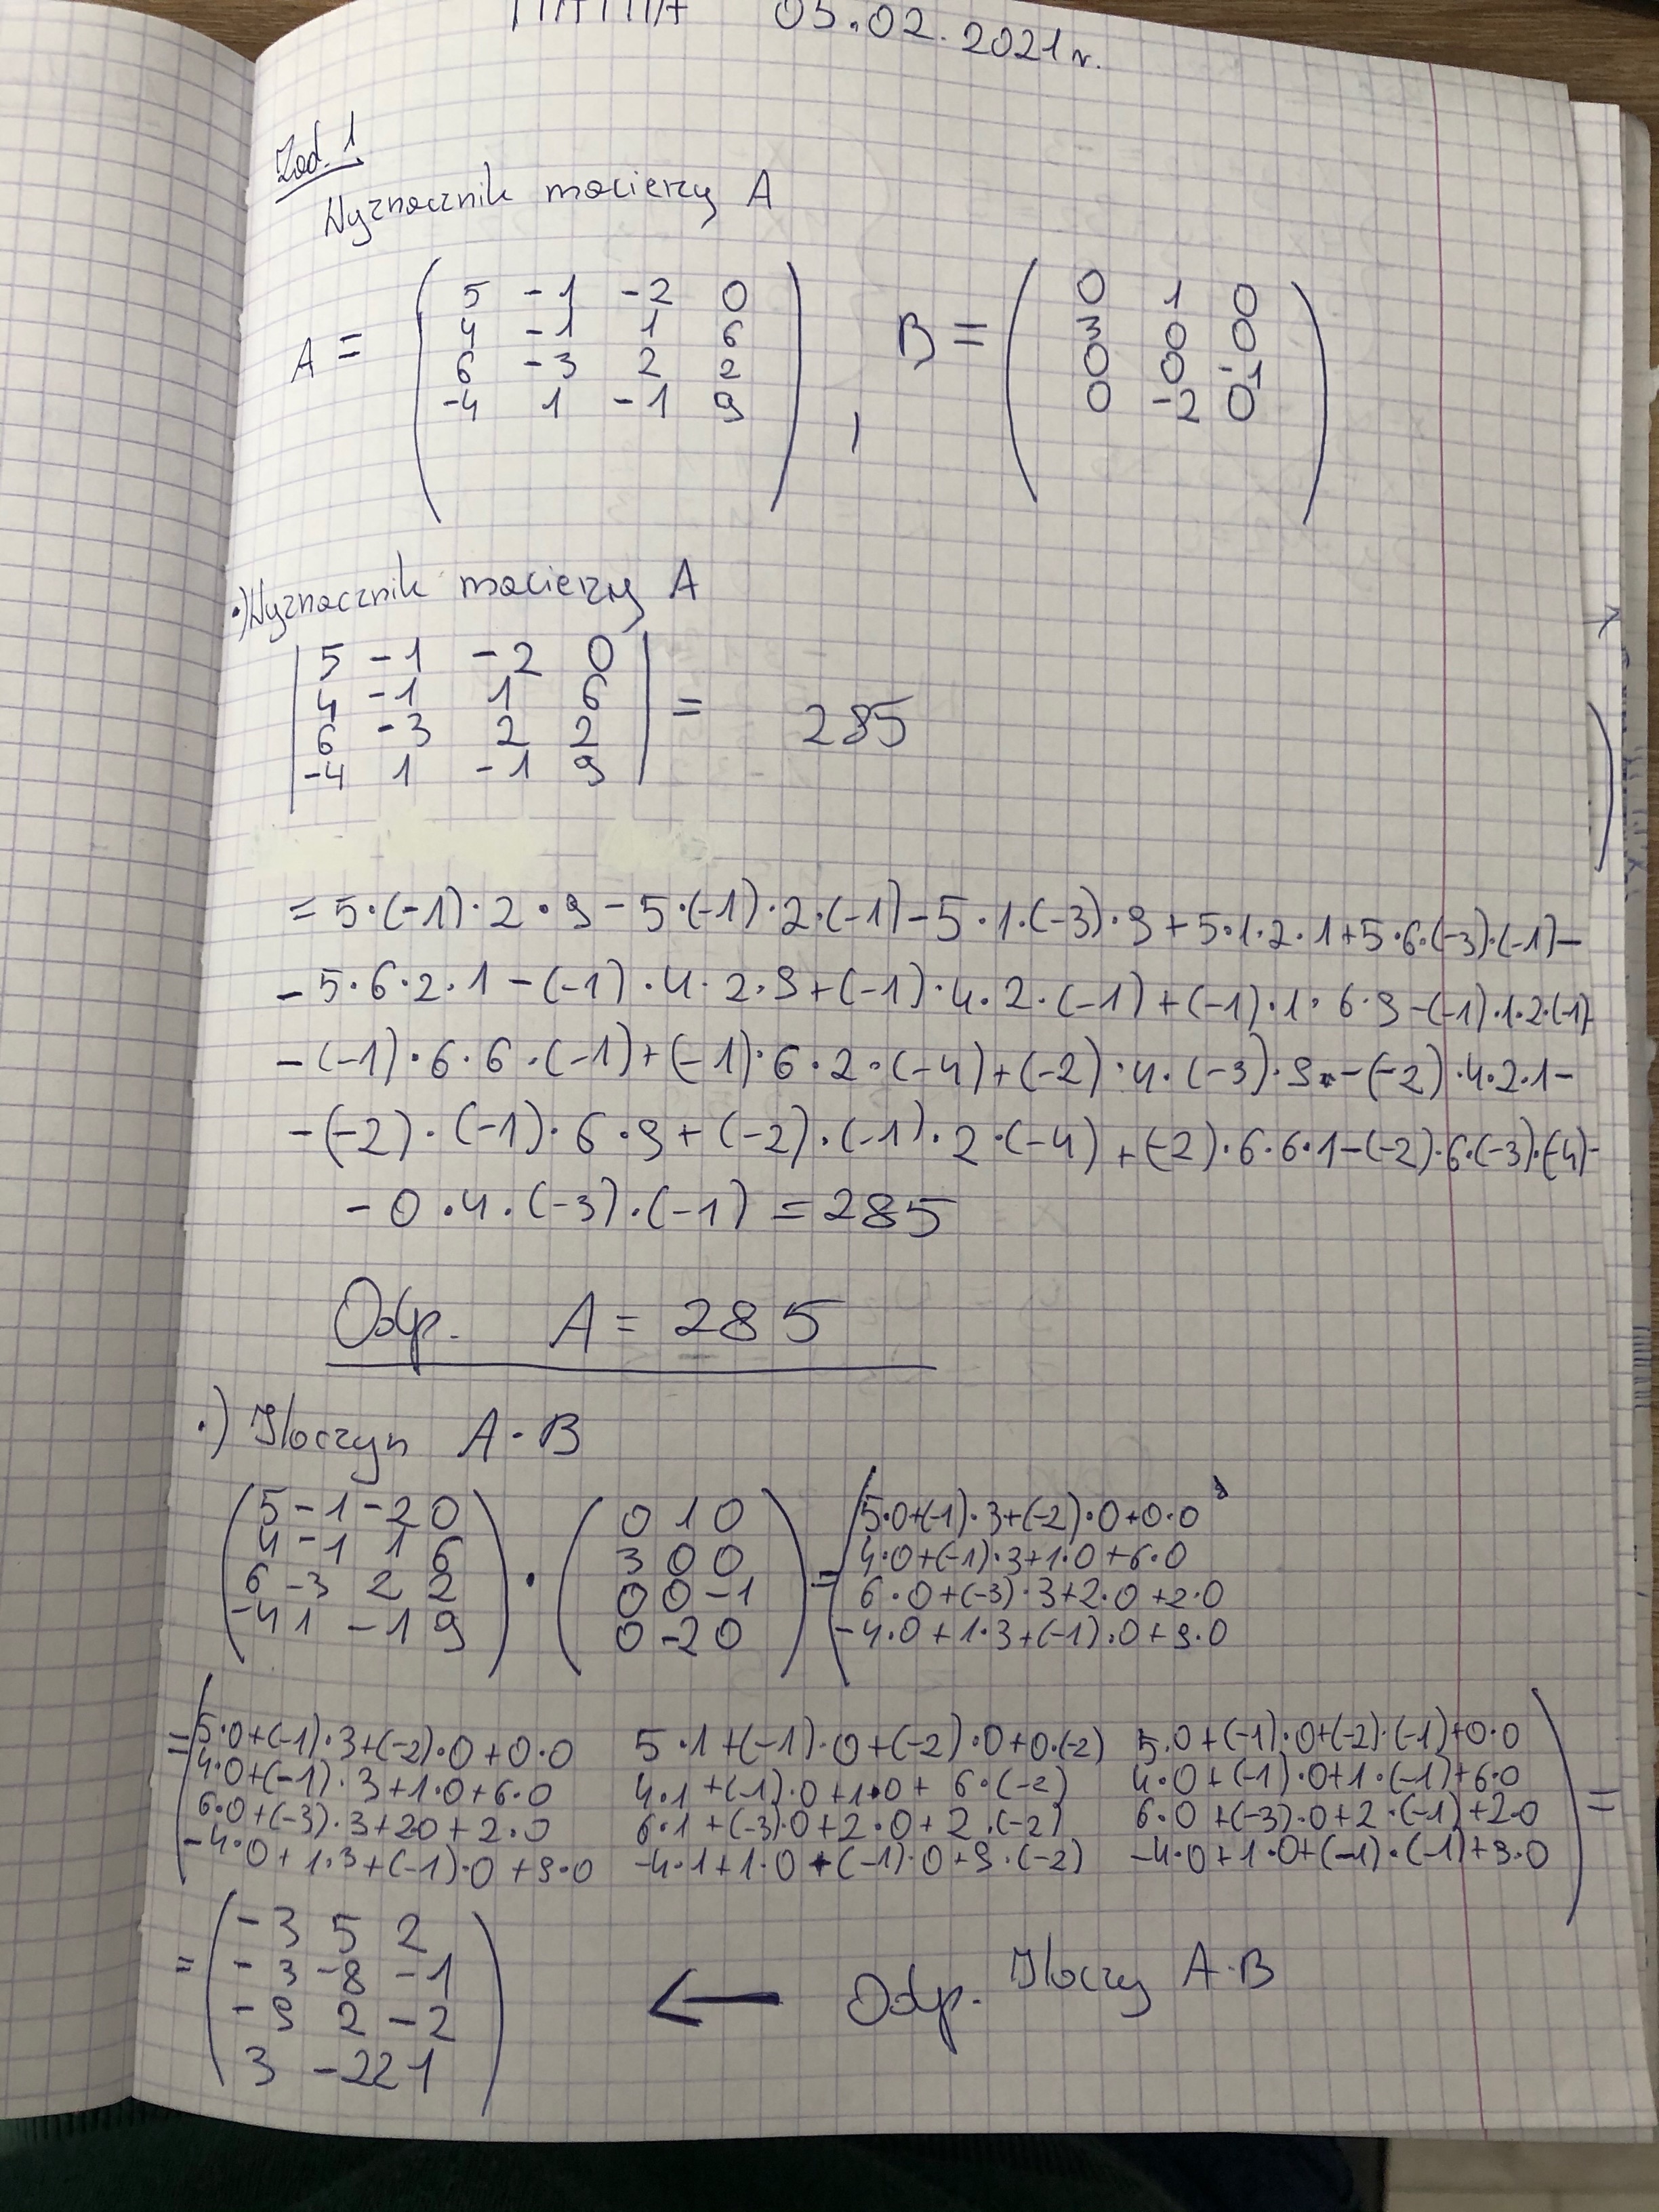 05.02.2021r.
Zad. 1
Wyznacznik macierzy A
A = ( 5 -1 -2 0 ) , B = ( 0 1 0 )
4 -1 1 6 3 0 0
6 -3 2 2 0 0 -1
-4 1 -1 9 0 -2 0
•) Wyznacznik macierzy A
| 5 -1 -2 0 |
4 -1 1 6 = 285
6 -3 2 2
-4 1 -1 9
= 5·(-1)·2·9-5·(-1)·2·(-1)-5·1·(-3)·9+5·1·2·1+5·6·(-3)·(-1)-
-5·6·2·1-(-1)·4·2·9+(-1)·4·2·(-1)+(-1)·1·6·9-(-1)·1·2·(-1)
-(-1)·6·6·(-1)+(-1)·6·2·(-4)+(-2)·4·(-3)·9-(-2)·4·2·1-
-(-2)·(-1)·6·9+(-2)·(-1)·2·(-4)+(-2)·6·6·1-(-2)·6·(-3)·(-4)-
-0·4·(-3)·(-1)=285
Odp. A = 285
•) Iloczyn A·B
( 5 -1 -2 0 ) · ( 0 1 0 ) = ( 5·0+(-1)·3+(-2)·0+0·0
4 -1 1 6 3 0 0 4·0+(-1)·3+1·0+6·0
6 -3 2 2 0 0 -1 6·0+(-3)·3+2·0+2·0
-4 1 -1 9 0 -2 0 -4·0+1·3+(-1)·0+9·0
= ( 5·0+(-1)·3+(-2)·0+0·0 5·1+(-1)·0+(-2)·0+0·(-2) 5·0+(-1)·0+(-2)·(-1)+0·0 ) =
4·0+(-1)·3+1·0+6·0 4·1+(-1)·0+1·0+6·(-2) 4·0+(-1)·0+1·(-1)+6·0
6·0+(-3)·3+20+2·0 6·1+(-3)·0+2·0+2·(-2) 6·0+(-3)·0+2·(-1)+2·0
-4·0+1·3+(-1)·0+9·0 -4·1+1·0+(-1)·0+9·(-2) -4·0+1·0+(-1)·(-1)+9·0
= ( -3 5 2 )
-3 -8 -1 ← Odp. Iloczy A·B
-9 2 -2
3 -22 1